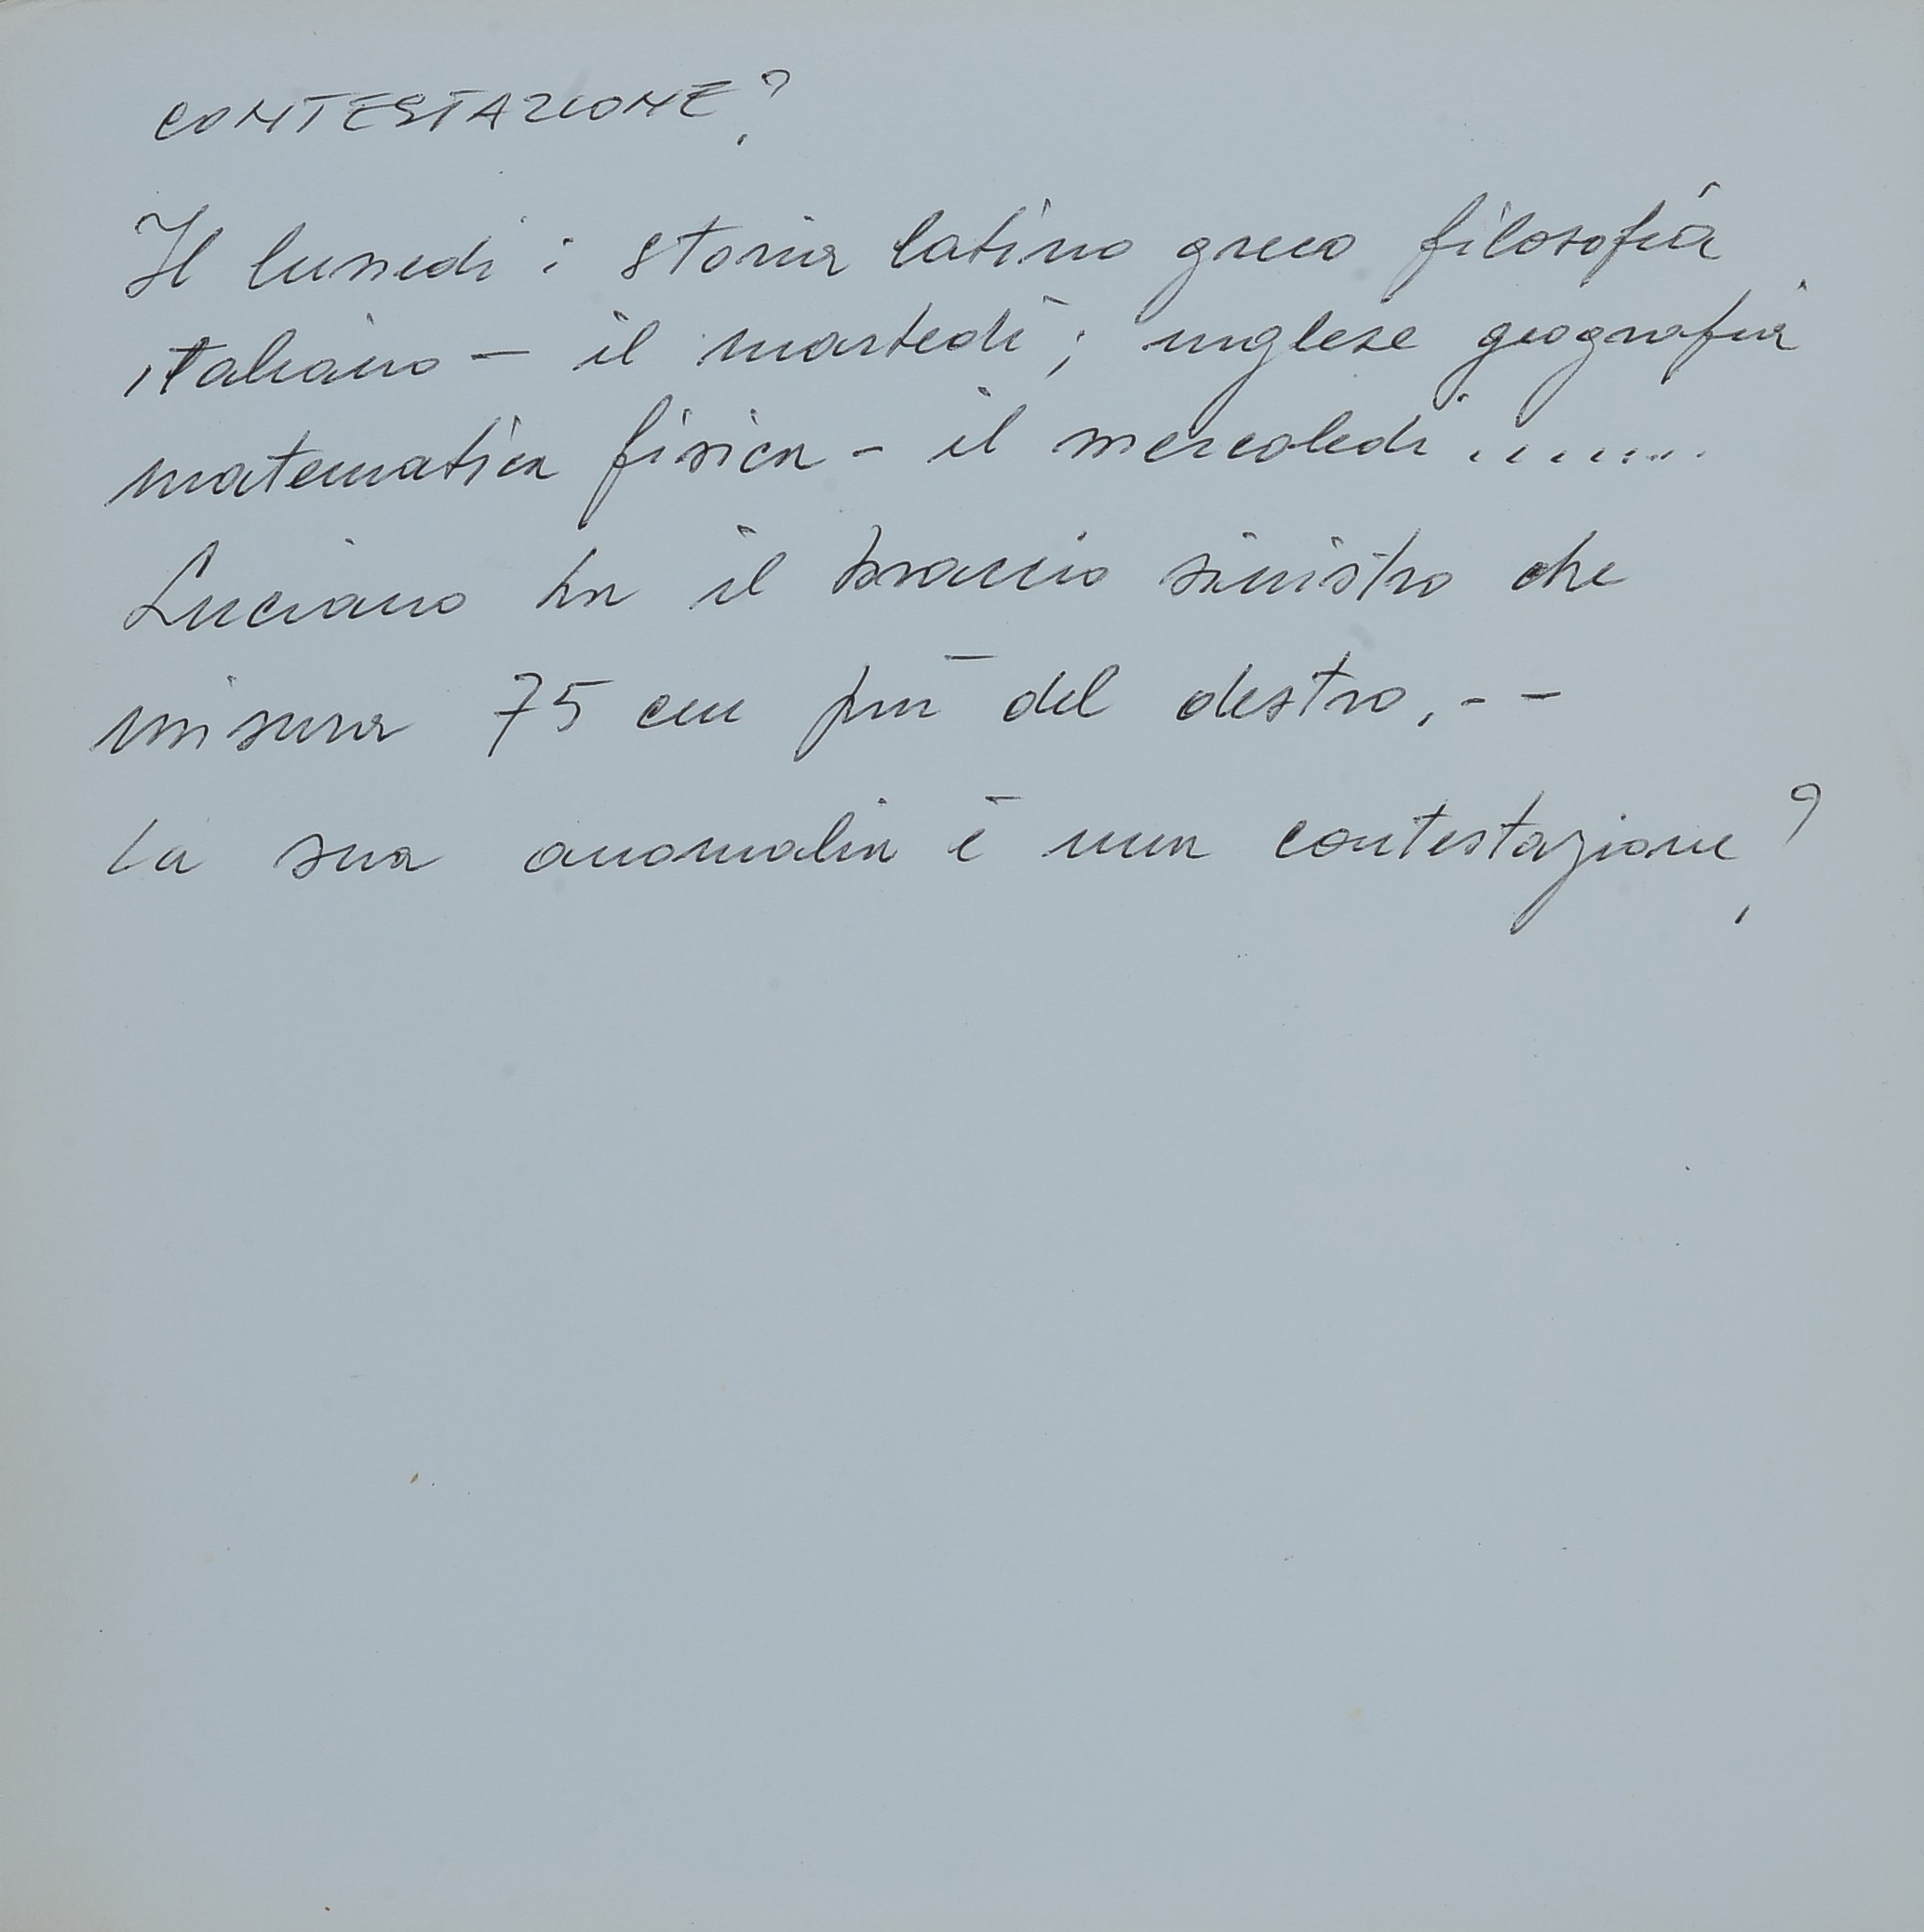 CONTESTAZIONE?
Il lunedì: storia latino greco filosofia
italiano — il martedì; inglese geografia
matematica fisica - il mercoledì ........
Luciano ha il braccio sinistro che
misura 75 cm più del destro. - -
La sua anomalia è una contestazione?